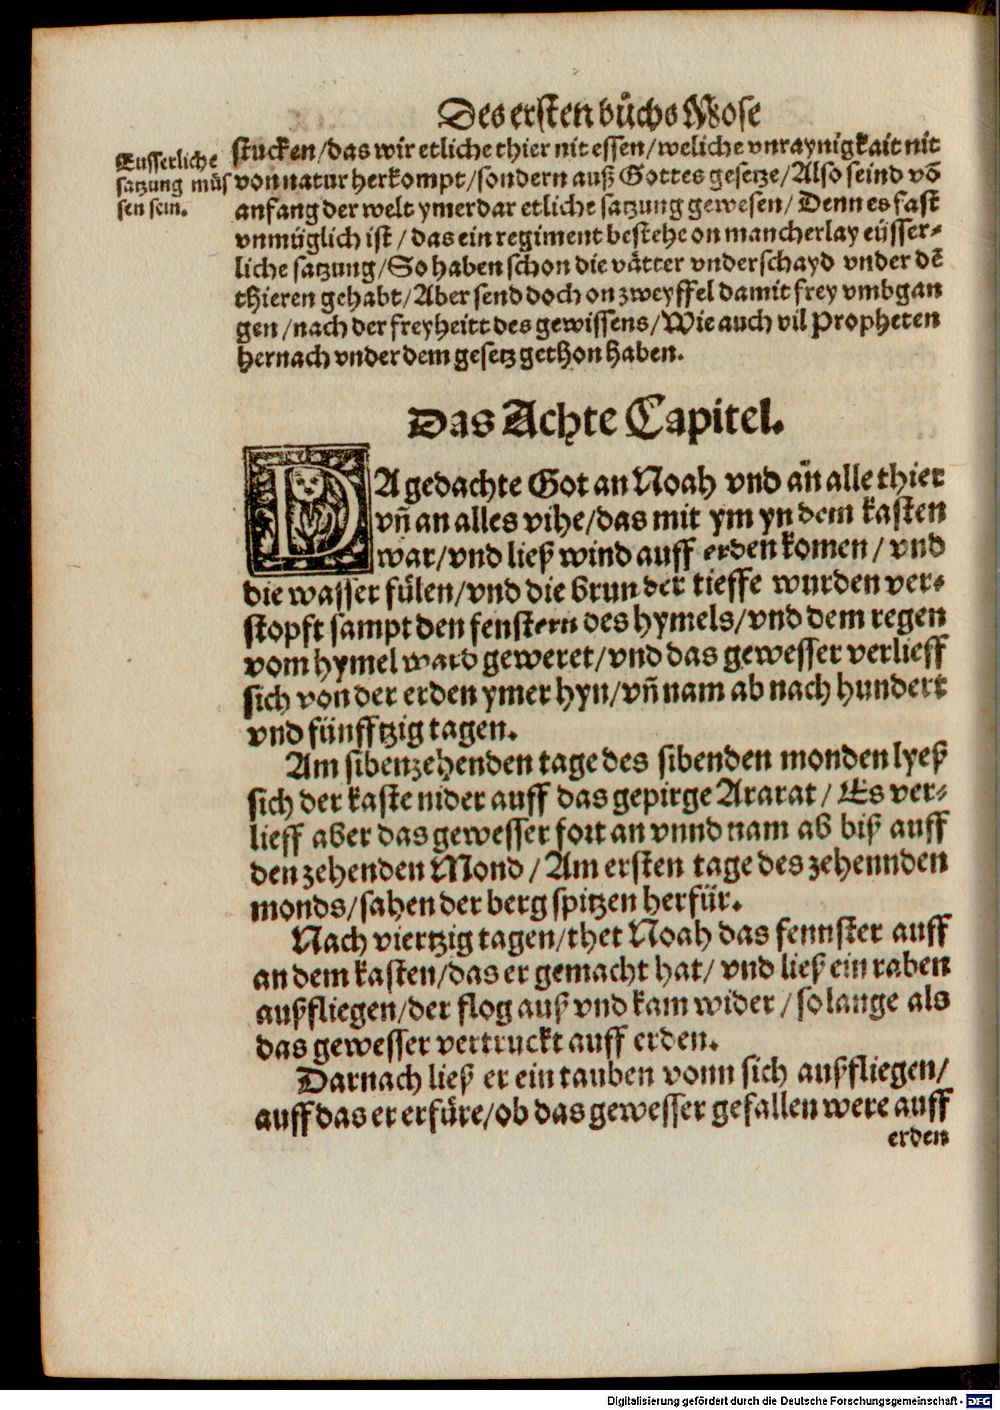 Des ersten buͤchs Mose
Eusserliche
satzung muͤs
sen sein.
stucken/das wir etliche thier nit essen/weliche vnraynigkait nit
von natur herkompt/sondern auß Gottes gesetze/Also seind võ
anfang der welt ymerdar etliche satzung gewesen/ Denn es fast
vnmüglich ist / das ein regiment bestehe on mancherlay eüsser-
liche satzung/So haben schon die vaͤtter vnderschayd vnder dē
thieren gehabt/Aber send doch on zweyffel damit frey vmbgan
gen/nach der freyheitt des gewissens/Wie auch vil Propheten
hernach vnder dem gesetz gethon haben.
Das Achte Capitel.
DA gedachte Got an Noah vnd añ alle thier
vñ an alles vihe/das mit ym yn dem kasten
war/vnd ließ wind auff erden komen / vnd
die wasser fülen/vnd die brun der tieffe wurden ver-
stopft sampt den fenstern des hymels/vnd dem regen
vom hymel ward geweret/vnd das gewesser verlieff
sich von der erden ymer hyn/vñ nam ab nach hundert
vnd fünfftzig tagen.
Am sibenzehenden tage des sibenden monden lyeß
sich der kaste nider auff das gepirge Ararat / Es ver-
lieff aber das gewesser fort an vnnd nam ab biß auff
den zehenden Mond / Am ersten tage des zehennden
monds/sahen der berg spitzen herfür.
Nach viertzig tagen/thet Noah das fennster auff
an dem kasten/das er gemacht hat/ vnd ließ ein raben
außfliegen/der flog auß vnd kam wider / so lange als
das gewesser vertruckt auff erden.
Darnach ließ er ein tauben vonn sich außfliegen/
auff das er erfüre/ob das gewesser gefallen were auff
erden
Digitalisierung gefördert durch die Deutsche Forschungsgemeinschaft - DFG